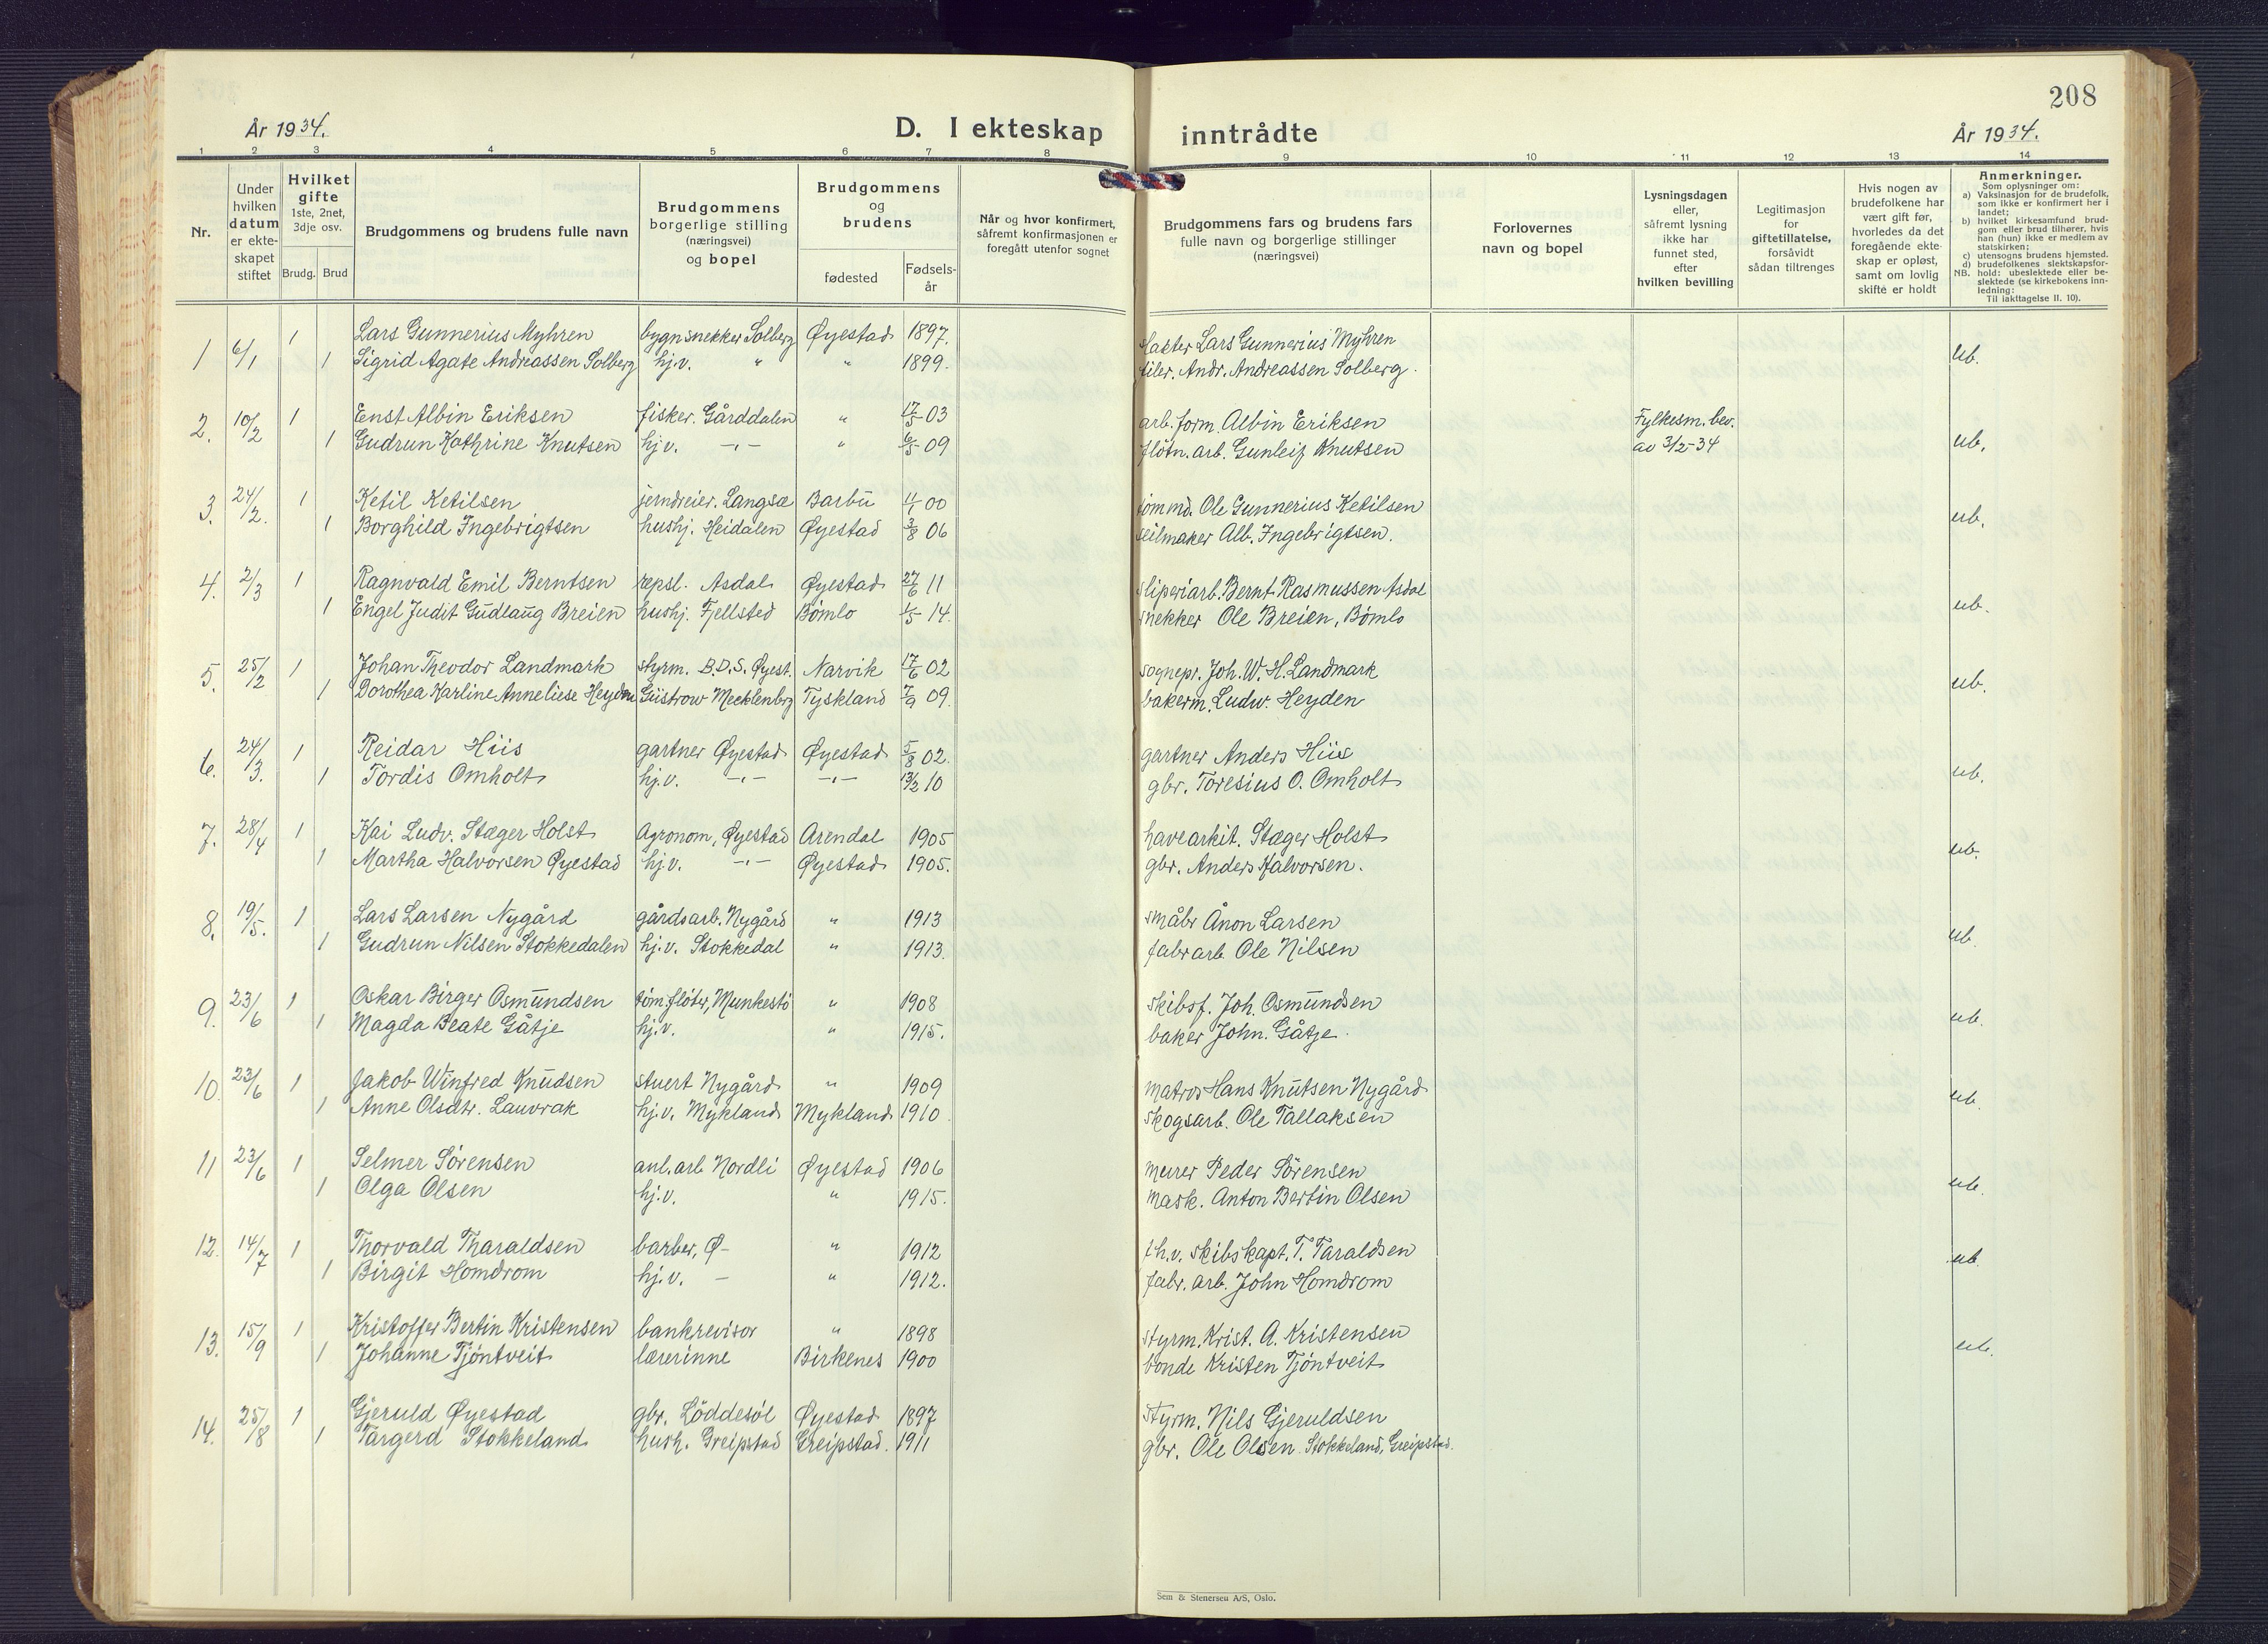 208
År 1934.
D. I ekteskap inntrådte
År 1934.
1 2 3 4 5 6 7 8 9 10 11 12 13 14
Nr.
Under hvilken datum er ekteskapet stiftet
Hvilket gifte 1ste, 2net, 3dje osv.
Brudg. Brud
Brudgommens og brudens fulle navn
Brudgommens borgerlige stilling (næringsvei) og bopel
Brudgommens og brudens
fødested
Fødselsår
Når og hvor konfirmert, såfremt konfirmasjonen er foregått utenfor sognet
Brudgommens fars og brudens fars fulle navn og borgerlige stillinger (næringsvei)
Forlovernes navn og bopel
Lysningsdagen eller, såfremt lysning ikke har funnet sted, efter hvilken bevilling
Legitimasjon for giftetillatelse, forsåvidt sådan tiltrenges
Hvis nogen av brudefolkene har vært gift før, hvorledes da det foregående ekteskap er opløst, samt om lovlig skifte er holdt
Anmerkninger.
Som oplysninger om:
a) Vaksinasjon for de brudefolk, som ikke er konfirmert her i landet;
b) hvilket kirkesamfund brudgom eller brud tilhører, hvis han (hun) ikke er medlem av statskirken;
c) utensogns brudens hjemsted.
d) brudefolkenes slektskapsforhold: ubeslektede eller beslektede (se kirkebokens innledning:
NB. Til iakttagelse II. 10).
1 6/1 1 Lars Gunnerius Myhren bygnsnekker Solberg Øyestad 1897. slakter Lars Gunnerius Myhren ub.
1 Sigrid Agate Andreassen Solberg hj.v. " " 1899. Andr. Andreassen Solberg.
2. 10/2 1 Enst Albin Eriksen fisker. Gårddalen " 17/5 03 arb. form. Albin Eriksen Fylkesm. bev. ub.
1 Gudrun Kathrine Knutsen hj.v. -"- " 6/5 09 fløtn. arb. Gunleif Knutsen av 3/2-34
3. 24/2. 1 Ketil Ketilsen jerndreier. Langsæ Barbu 00 tømmd. Ole Gunnerius Ketilsen ub.
1 Borghild Ingebrigtsen hushj. Heidalen Øyestad 3/8 06 seilmaker Alb. Ingebrigtsen.
4. 2/3 1 Ragnvald Emil Berntsen repsl. Asdal Øyestad 27/6 11 sliperiarb. Bernt Rasmussen Asdal ub.
1 Engel Judit Gudlaug Breien hushj. Fjellsted Bømlo 1/5 14. snekker Ole Breien, Bømlo
5. 25/2 1 Johan Theodor Landmark styrm. B.D.S. Øyest. Narvik 17/6 02 sognepr. Joh. W. H. Landmark ub.
1 Dorothea Karline Anneliese Heyden Güstrow Mecklenbrg Tyskland 7/9 09. bakerm. Ludw. Heyden
6. 24/3. 1 Reidar Hiis gartner Øyestad Øyestad 5/8 02. gartner Anders Hiis ub.
1 Tordis Omholt hj.v. -"- -"- 13/2 10 gbr. Toresius O. Omholt
7. 28/4 1 Kai Ludv. Stæger Holst Agronom, Øyestad Arendal 1905 havearkit. Stæger Holst ub.
1 Martha Halvorsen Øyestad hj.v. -"- Øyestad 1905. gbr. Anders Halvorsen.
8. 19/5. 1 Lars Larsen Nygård gårdsarb. Nygård " 1913 småbr Ånon Larsen ub.
1 Gudrun Nilsen Stokkedalen hj.v. Stokkedal " 1913. fabrarb Ole Nilsen
9. 23/6 1 Oskar Birger Osmundsen tøm.fløter, Munkestø " 1908 skibsf. Joh. Osmundsen ub.
1 Magda Beate Gåtje hj.v. " 1915. baker John. Gåtje.
10. 23/6 1 Jakob Winfred Knudsen stuert Nygård " 1909 matros Hans Knutsen Nygård ub.
1 Anne Olsdtr. Lauvrak hj.v. Mykland Mykland 1910 skogsarb. Ole Tallaksen
11 23/6 1 Selmer Sørensen anl.arb Nordli Øyestad 1906 murer Peder Sørensen ub.
1 Olga Olsen hj.v. " 1915. mask. Anton Bertin Olsen
12. 14/7 1 Thorvald Tharaldsen barber, Ø- " 1912 fh.v. skibskapt. T. Taraldsen ub
1 Birgit Homdrom hj.v. - " 1912. fabr. arb. John Homdrom
13. 15/9 1 Kristoffer Bertin Kristensen bankrevisor " 1898 styrm. Krist. A. Kristensen ub.
1 Johanne Tjøntveit lærerinne Birkenes 1900 bonde Kristen Tjøntveit
14. 25/8 1 Gjeruld Øyestad gbr. Løddesøl Øyestad 1897 styrm. Nils Gjeruldsen
1 Targerd Stokkeland hush. Greipstad Greipstad. 1911 gbr. Ole Olsen Stokkeland, Greipstad.
Sem & Stenersen A/S, Oslo.